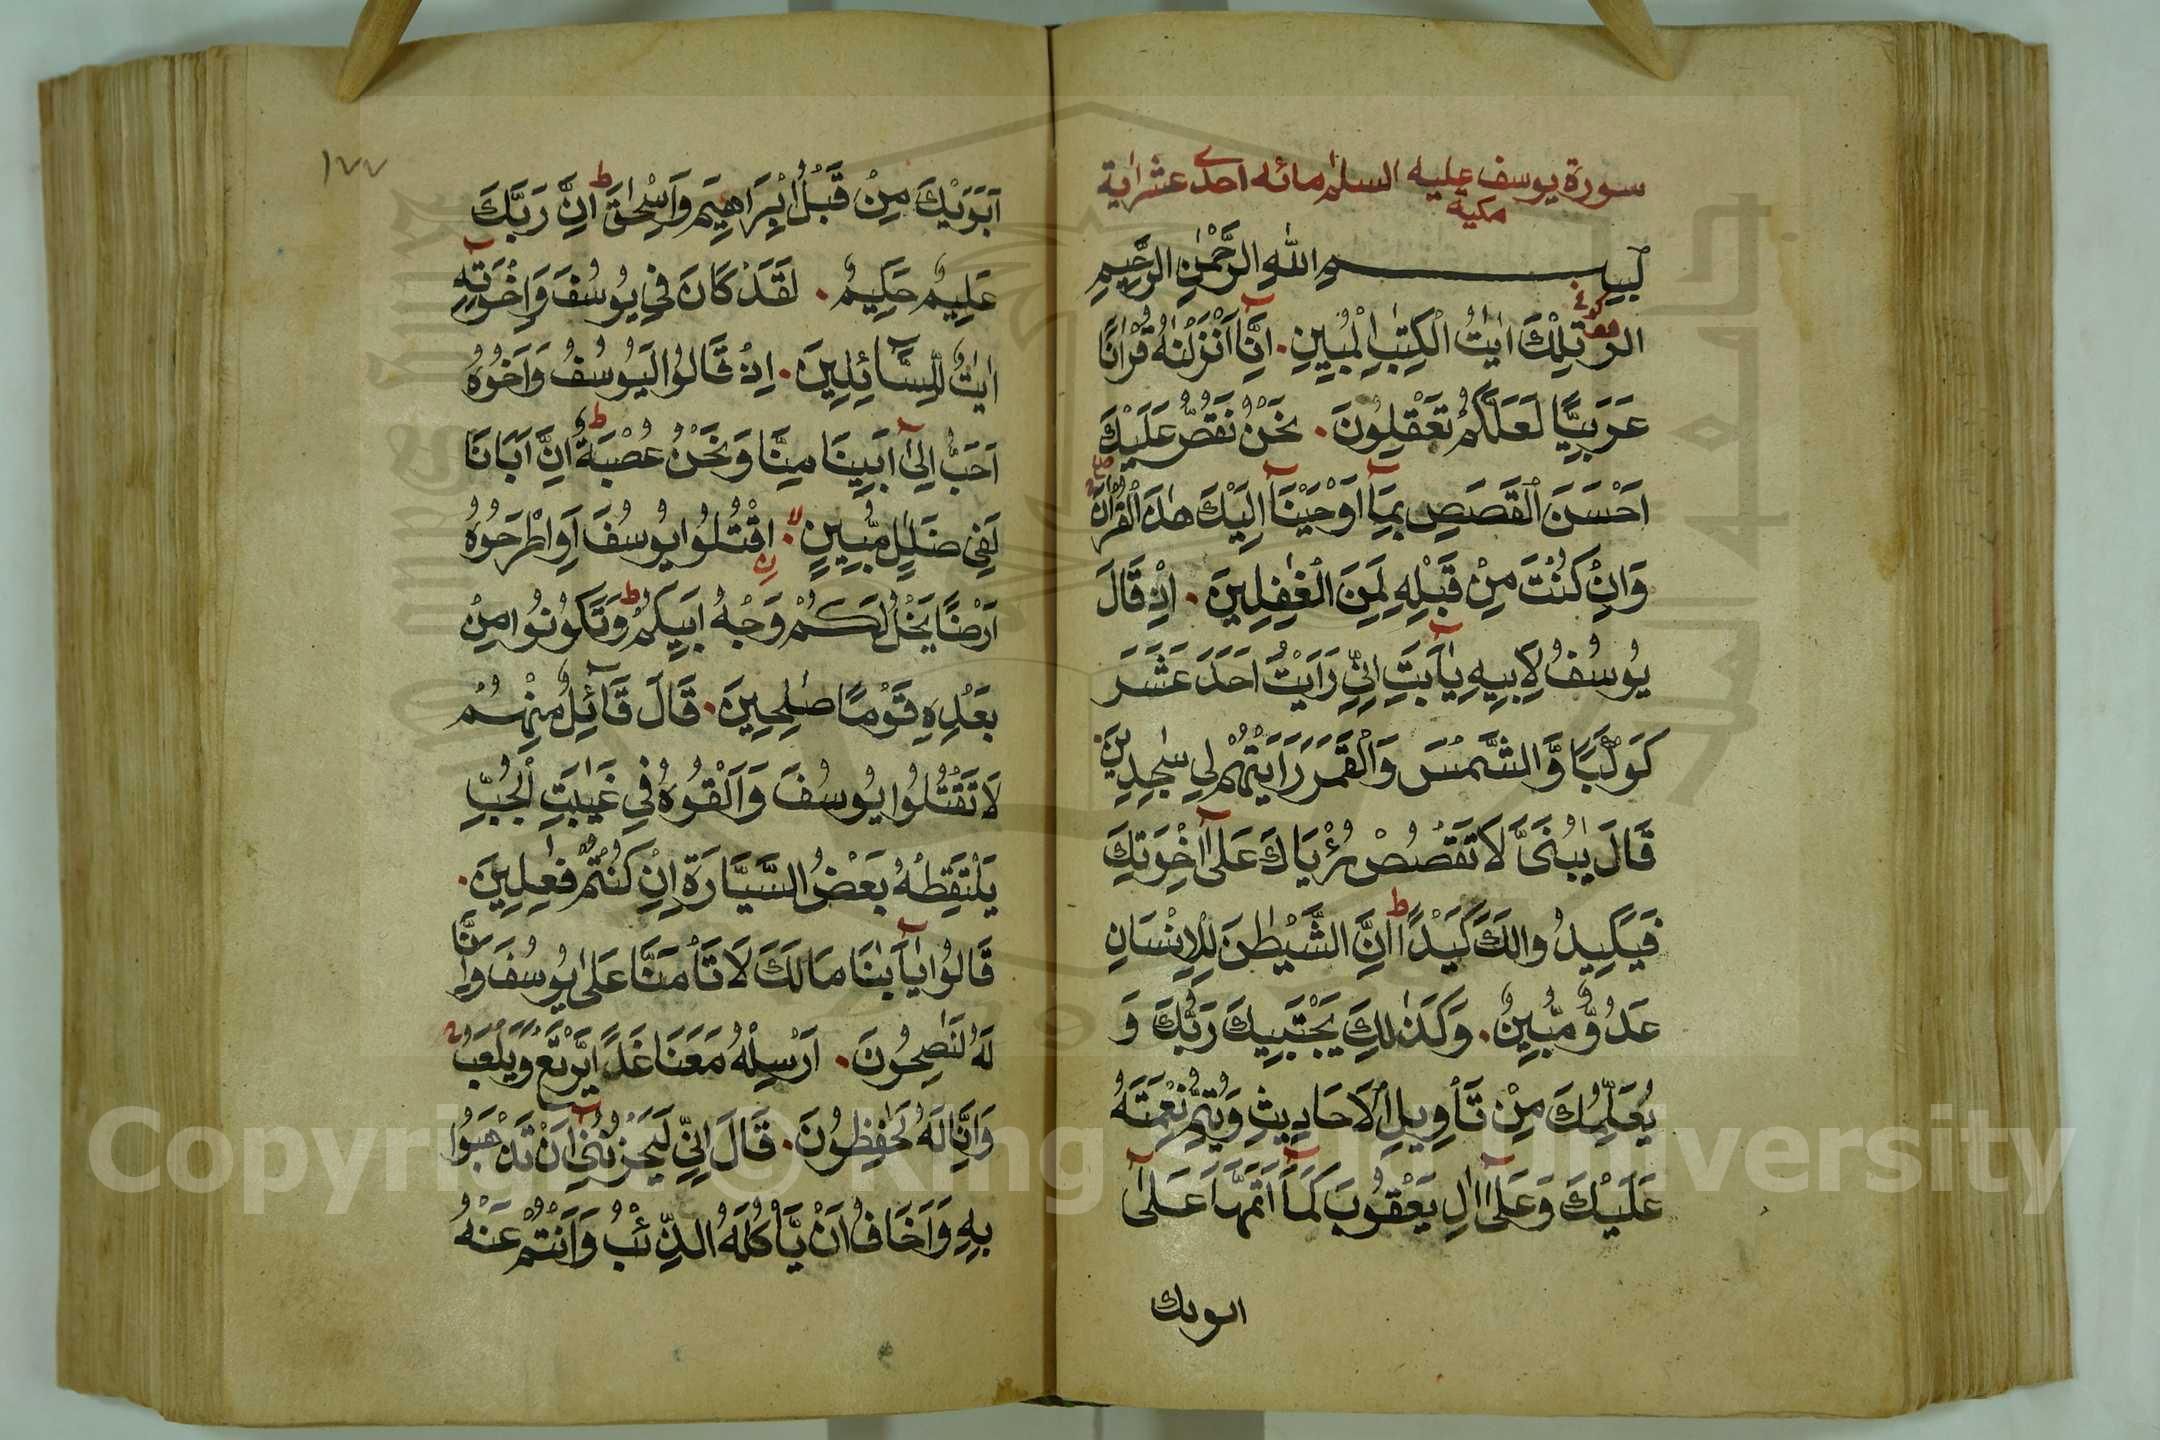 سورة يوسف عليه السلم مائه احدى عشر اية
مكية
بِسْمِ اللّٰهِ الرَّحْمٰنِ الرَّحِيمِ
الر تِلْكَ اٰيٰتُ الْكِتٰبِ الْمُبِينِ. اِنَّا اَنْزَلْنٰهُ قُرْاٰنًا
عَرَبِيًّا لَعَلَّكُمْ تَعْقِلُونَ. نَحْنُ نَقُصُّ عَلَيْكَ
اَحْسَنَ الْقَصَصِ بِمَآ اَوْحَيْنَآ اِلَيْكَ هٰذَا الْقُرْاٰنَ
وَاِنْ كُنْتَ مِنْ قَبْلِهِ لَمِنَ الْغٰفِلِينَ. اِذْ قَالَ
يُوسُفُ لِاَبِيهِ يٰٓاَبَتِ اِنِّي رَاَيْتُ اَحَدَ عَشَرَ
كَوْكَبًا وَّالشَّمْسَ وَالْقَمَرَ رَاَيْتُهُمْ لِي سٰجِدِينَ.
قَالَ يٰبُنَيَّ لَا تَقْصُصْ رُءْيَاكَ عَلٰٓى اِخْوَتِكَ
فَيَكِيدُوا لَكَ كَيْدًا ط اِنَّ الشَّيْطٰنَ لِلْاِنْسَانِ
عَدُوٌّ مُّبِينٌ. وَكَذٰلِكَ يَجْتَبِيكَ رَبُّكَ وَ
يُعَلِّمُكَ مِنْ تَأْوِيلِ الْاَحَادِيثِ وَيُتِمُّ نِعْمَتَهُ
عَلَيْكَ وَعَلٰٓى اٰلِ يَعْقُوبَ كَمَآ اَتَمَّهَا عَلٰٓى
ابويك
١٧٧
اَبَوَيْكَ مِنْ قَبْلُ اِبْرَاهِيمَ وَاِسْحٰقَ ط اِنَّ رَبَّكَ
عَلِيمٌ حَكِيمٌ. لَقَدْ كَانَ فِي يُوسُفَ وَاِخْوَتِهِٓ
اٰيٰتٌ لِّلسَّآئِلِينَ. اِذْ قَالُوا لَيُوسُفُ وَاَخُوهُ
اَحَبُّ اِلٰٓى اَبِينَا مِنَّا وَنَحْنُ عُصْبَةٌ ط اِنَّ اَبَانَا
لَفِي ضَلٰلٍ مُّبِينٍ. لا اقْتُلُوا يُوسُفَ اَوِ اطْرَحُوهُ
اَرْضًا يَخْلُ لَكُمْ وَجْهُ اَبِيكُمْ ط وَتَكُونُوا مِنْ
بَعْدِهِ قَوْمًا صٰلِحِينَ. قَالَ قَآئِلٌ مِّنْهُمْ
لَا تَقْتُلُوا يُوسُفَ وَاَلْقُوهُ فِي غَيٰبَتِ الْجُبِّ
يَلْتَقِطْهُ بَعْضُ السَّيَّارَةِ اِنْ كُنْتُمْ فٰعِلِينَ.
قَالُوا يٰٓاَبَانَا مَا لَكَ لَا تَأْمَنَّا عَلٰى يُوسُفَ وَاِنَّا
لَهُ لَنٰصِحُونَ. اَرْسِلْهُ مَعَنَا غَدًا يَّرْتَعْ وَيَلْعَبْ
وَاِنَّا لَهُ لَحٰفِظُونَ. قَالَ اِنِّي لَيَحْزُنُنِيٓ اَنْ تَذْهَبُوا
بِهِ وَاَخَافُ اَنْ يَّأْكُلَهُ الذِّئْبُ وَاَنْتُمْ عَنْهُ
Copyright © King Saud University